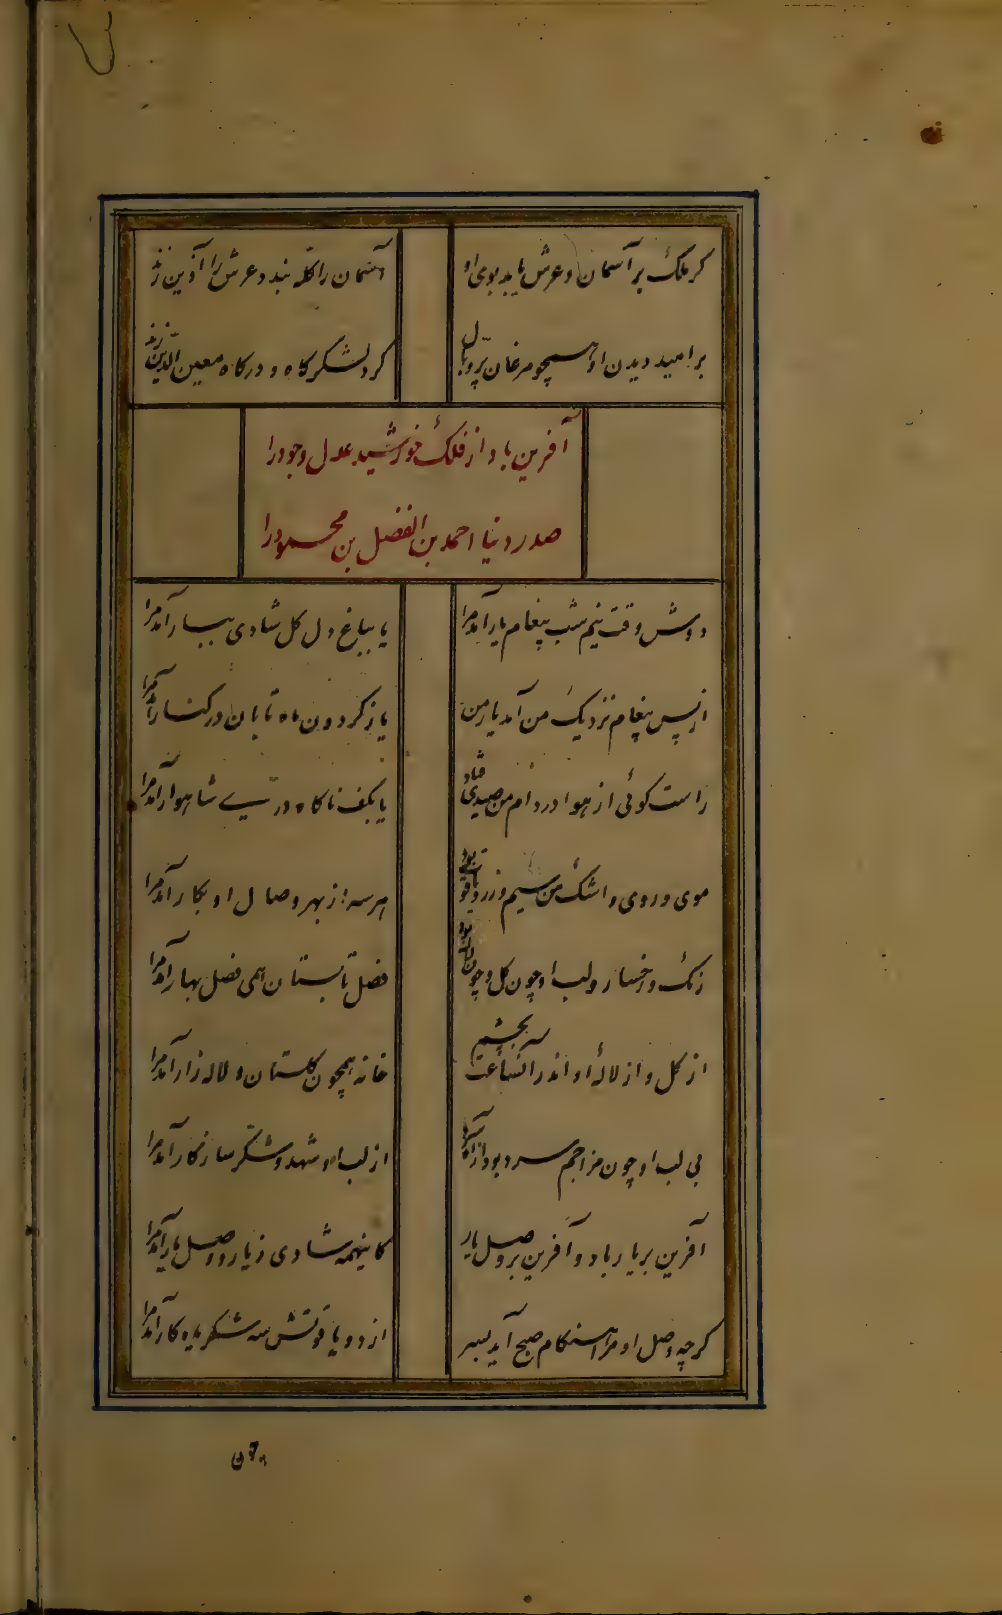 کر ملک بر آسمان و عرش یابد بوی او
آسمان را کله بندد عرش را آذین زند
بر امید دیدن او همچو مرغان پر و بال
کرد لشکرکاه و درکاه معین الدین زند
آفرین باد از فلک خورشید عدل و جود را
صدر دنیا احمد بن الفضل بن محمود را
دوش وقت نیم شب پیغام یار آمد مرا
یا بباغ دل کل شادی ببار آمد مرا
از پس پیغام نزدیک من آمد یار من
یا ز کردون ماه تابان در کنار آمد مرا
راست کوئی از هوا در دام من صیدی فتاد
یا بکف ناکاه در ّے شاهوار آمد مرا
موی و روی و اشک من سیم و زر و یاقوت بود
هر سه از بهر وصال او بکار آمد مرا
زنک و رخسار و لب او چون کل و چون لاله بود
فصل تابستان همی فصل بهار آمد مرا
از کل و از لالهٔ او اندر آنساعت بچشم
خانه همچون کلستان و لاله زار آمد مرا
بی لب او چون مزاجم سرد بود از
از لب او شهد و شکر سازکار آمد مرا
آفرین بر یار باد و آفرین بر وصل یار
کاینهمه شادی ز یار و وصل یار آمد مرا
کر چه وصل او مرا هنکام صبح آید بسر
از دو یاقوتش سه شکر یادکار آمد مرا